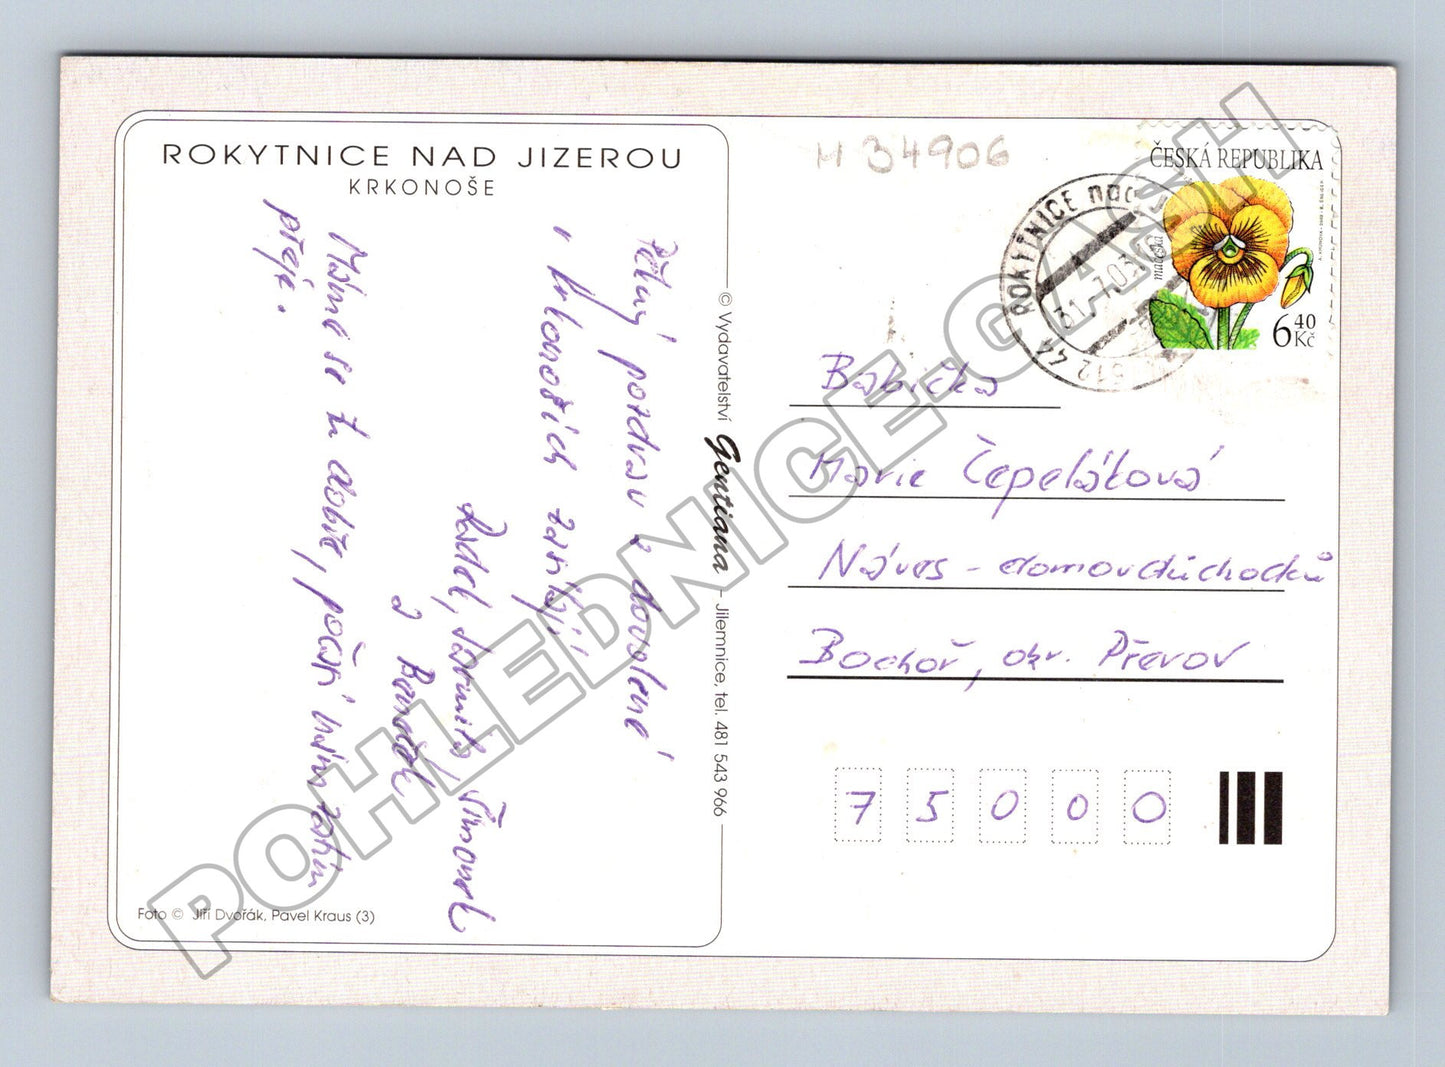 ROKYTNICE NAD JIZEROU
KRKONOŠE
Pěkný pozdrav z dovolené
v Krkonoších zasílají
Radek, Jarmila, Šimonek
a Bereněk
Máme se tu dobře, počasí nám zatím
přeje.
Foto © Jiří Dvořák, Pavel Kraus (3)
© Vydavatelství Gentiana – Jilemnice, tel. 481 543 966
H 34906
ČESKÁ REPUBLIKA
6 40 Kč
ROKYTNICE nad
31.-7.03
512 44
Babička
Marie Čepeláková
Náves - domov důchodců
Bochoř, okr. Přerov
75000
POHLEDNICE.CASH